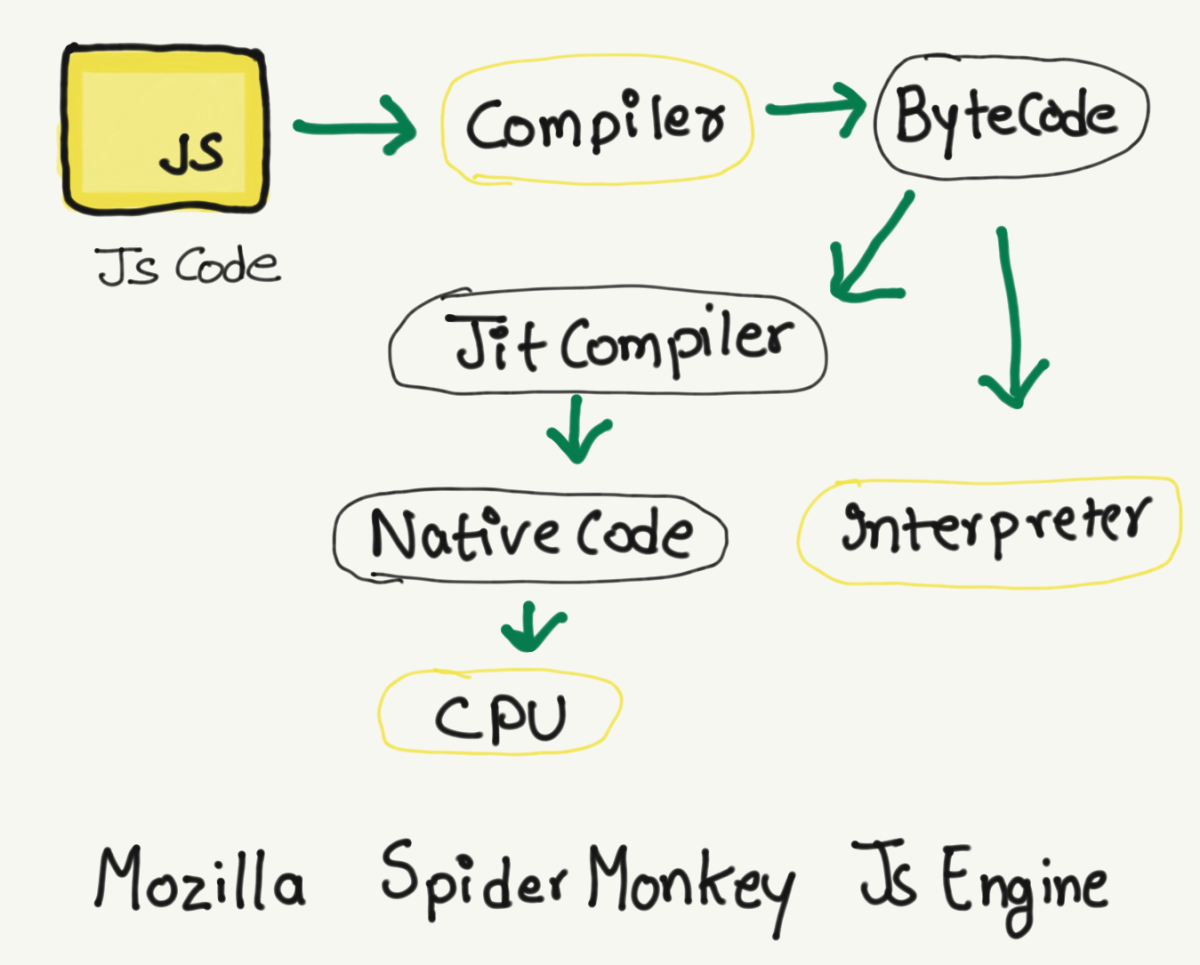 JS
Js Code
Compiler
ByteCode
Jit Compiler
Native Code
Interpreter
CPU
Mozilla Spider Monkey Js Engine